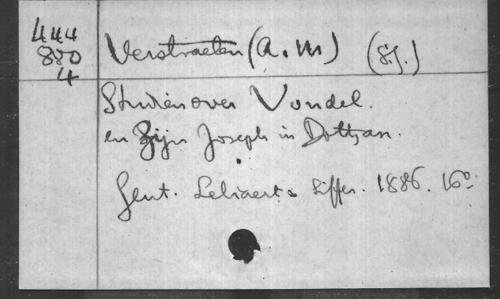 444
880
4
Verstraeten (A. M) (S.J.)
Studien over Vondel.
en Zijn Joseph in Dothan.
Gent. Leliaert & Siffer. 1886. 16º